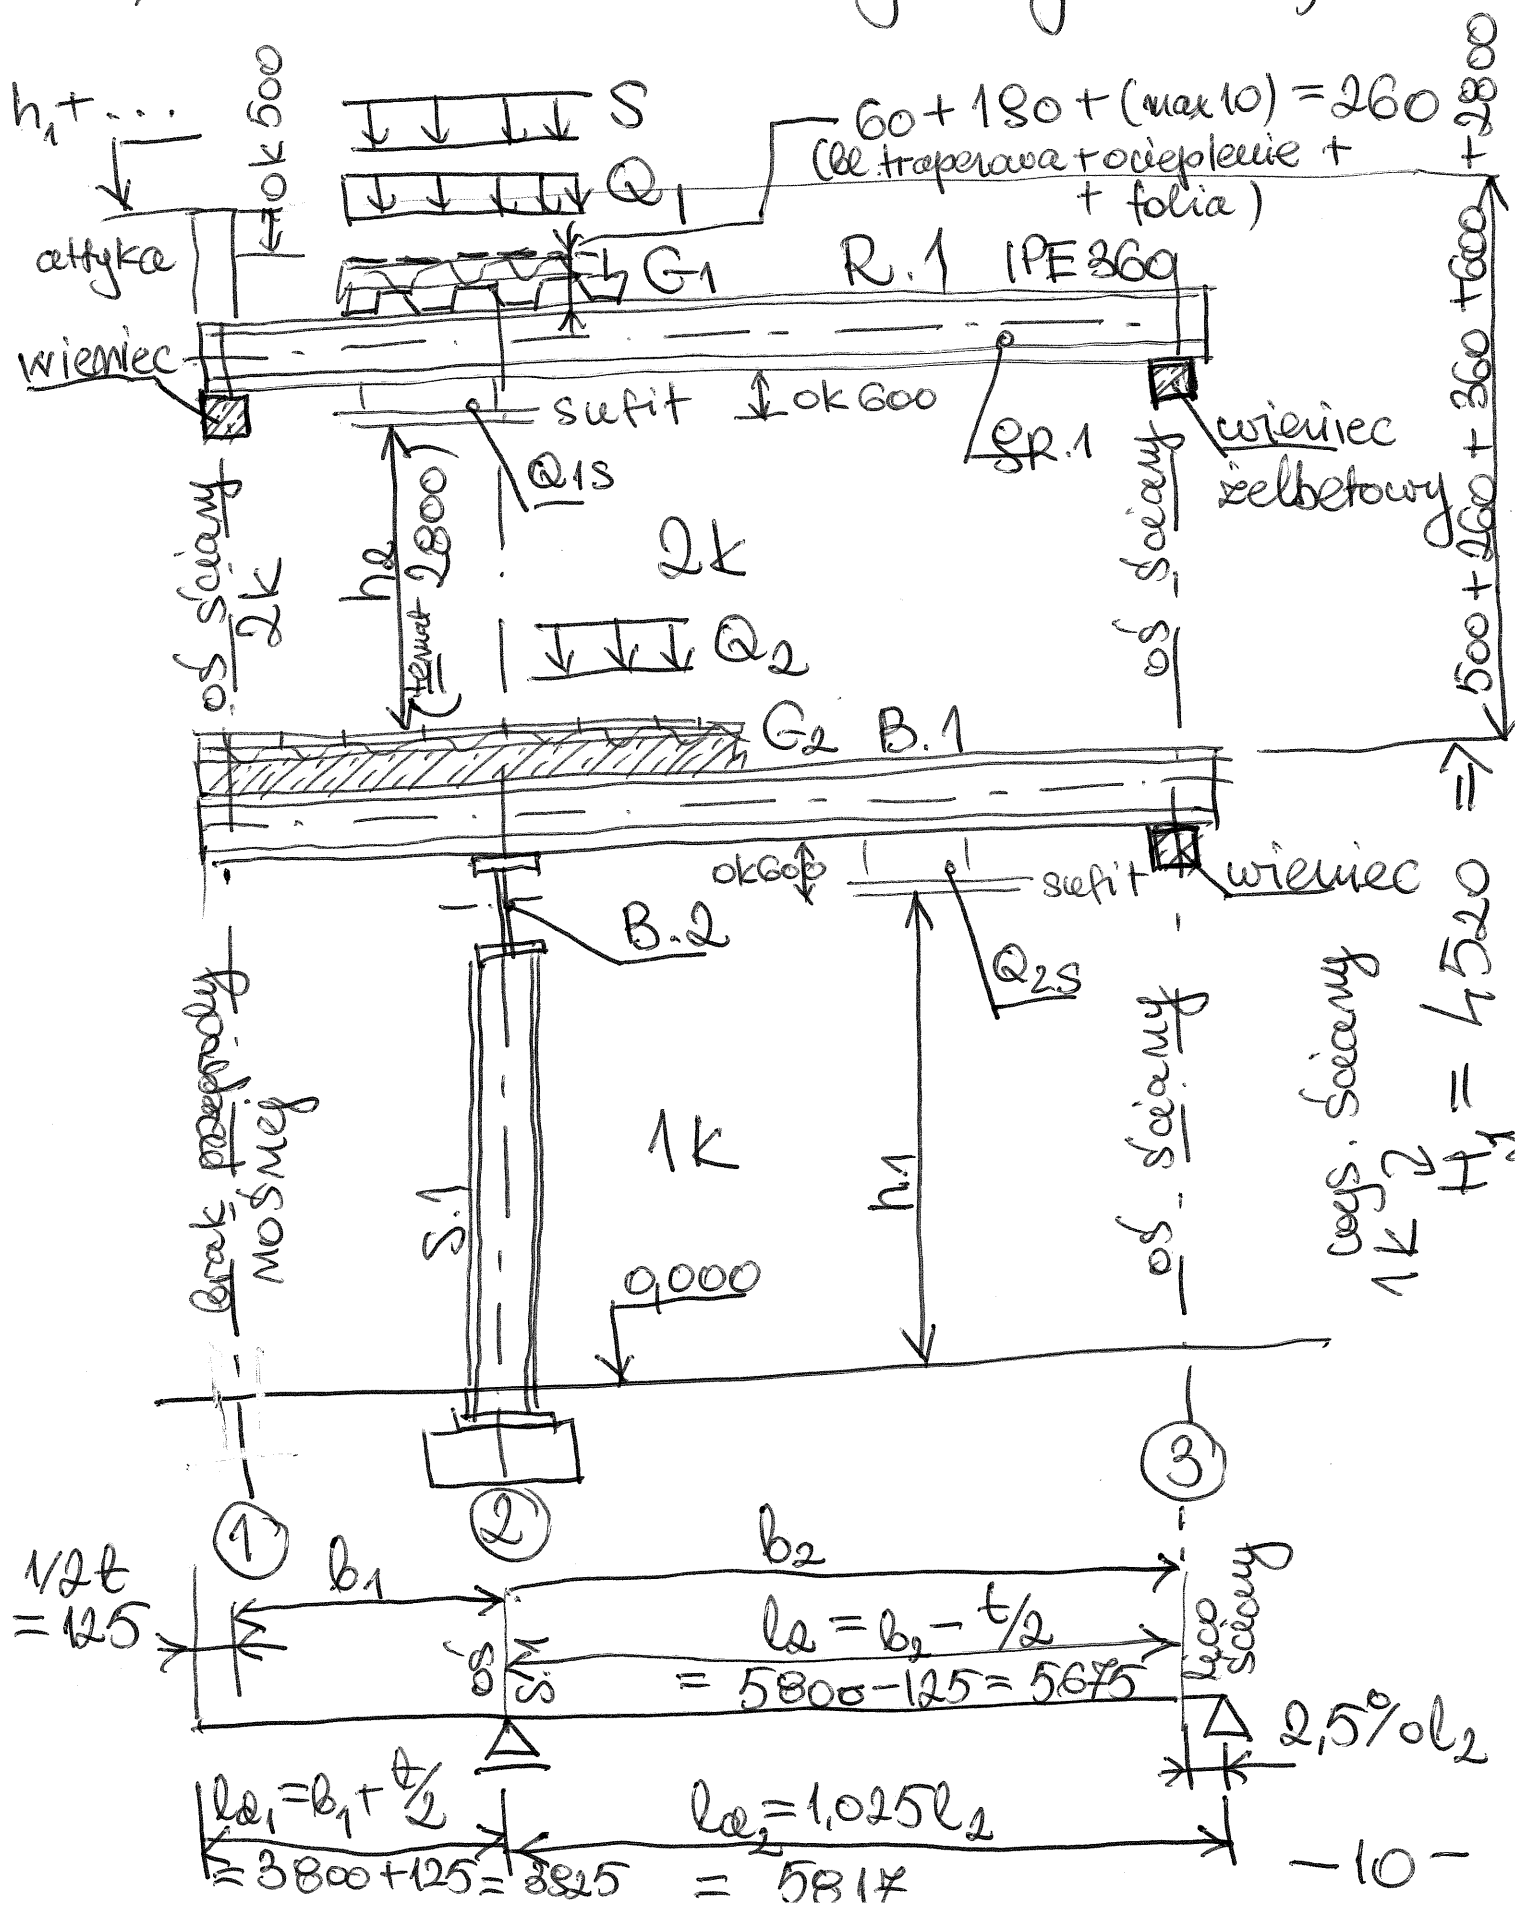 h₁ + ...
ok 500
S
60 + 180 + (max 10) = 260
(bl. trapezowa + ocieplenie +
+ folia)
Q₁
attyka
G₁
R.1 IPE 360
wieniec
sufit
ok 600
gR.1
wieniec
żelbetowy
Q1S
oś ściany
2K
h₂
(temat 2800)
2K
oś ściany
500 + 260 + 360 + 600 + 2800
Q₂
G₂ B.1
ok 600
sufit
wieniec
B.2
Q2S
Brak przeprody
nośnej
S.1
1K
h1
oś ściany
wys. ściany
1K
H₁ = 4520 ⇒
0,000
1
2
3
1/2t
= 125
b₁
b₂
oś
S.1
l₂ = b₂ - t/2
= 5800 - 125 = 5675
lico
ściany
2,5% l₂
la₁ = b₁ + t/2
= 3800 + 125 = 3925
la₂ = 1,025 l₂
= 5817
- 10 -